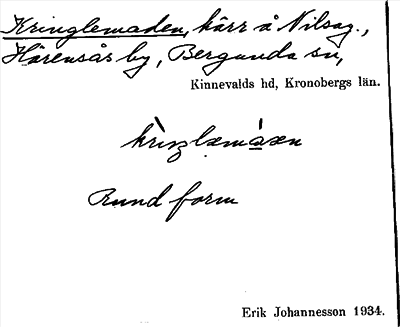 Kringlemaden, kärr å Nilsag.,
Härensås by, Bergunda sn,
Kinnevalds hd, Kronobergs län.
Rund form
Erik Johannesson 1934.